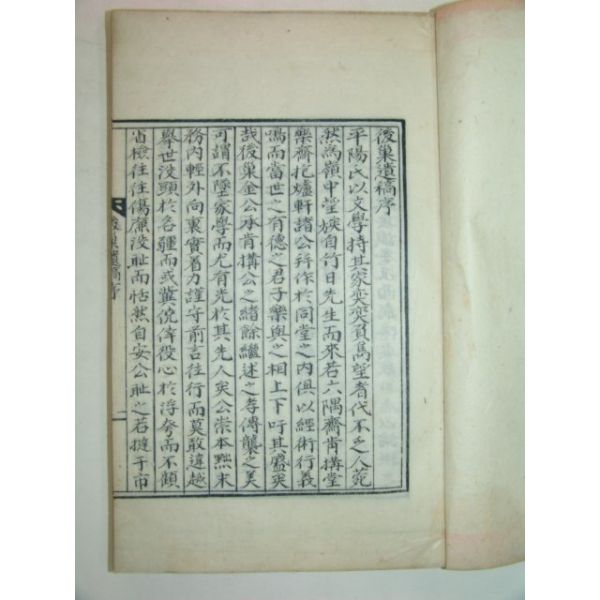 後巢遺稿序
平陽氏以文學持其家奕奕負雋望者代不乏人菀
然爲嶺中望族自竹日先生而來若六隅齋肯搆堂
樂齋挖爐軒諸公幷作於同堂之內俱以經術行義
鳴而當世之有德之君子樂與之相上下吁其盛矣
哉後巢金公承肯搆公之緖餘繼述之孝傳襲之美
可謂不墜家學而尤有光於其先人矣公崇本黜末
務內輕外向裏實着力謹守前言往行而莫敢違越
擧世沒頭於名疆而或冀倪倖役心於浮夸而不顧
省檢往往傷廉沒耻而恬然自安公耻之若撻于市
後巢遺稿序
一